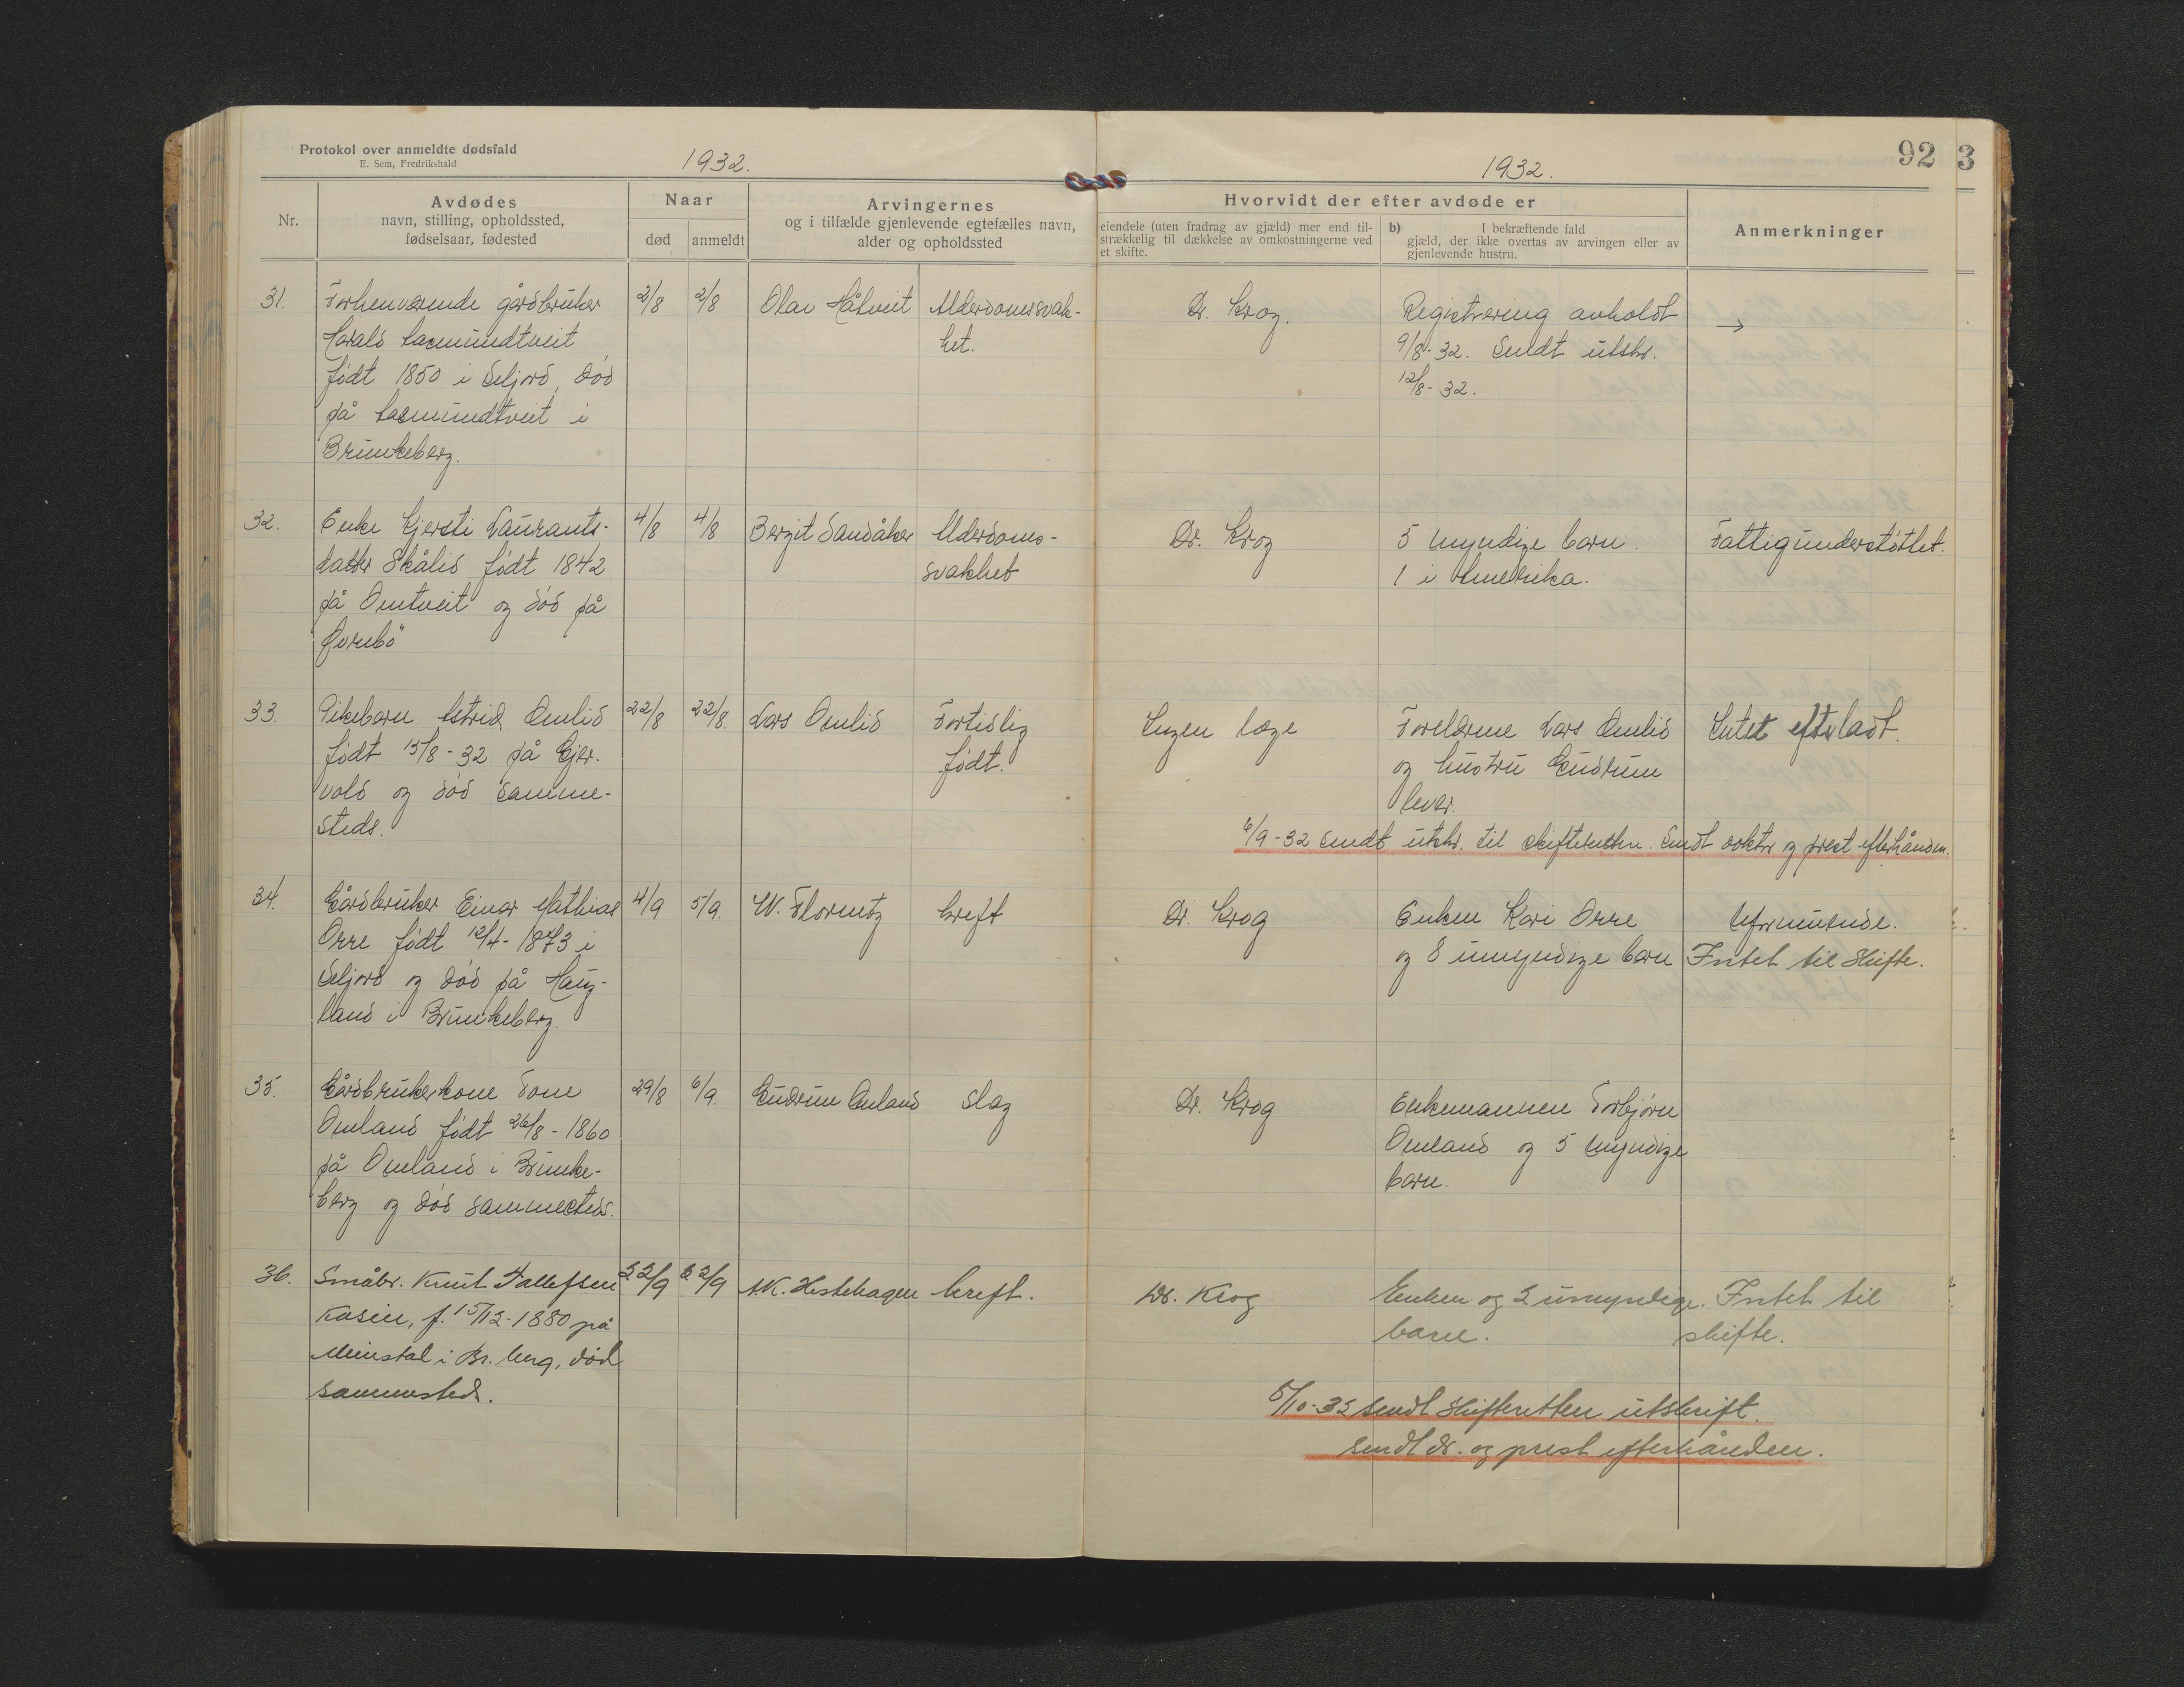 Protokol over anmeldte dødsfald
E. Sem, Fredrikshald
1932.
1932.
92
3
Nr.
Avdødes
navn, stilling, opholdssted,
fødselsaar, fødested
Naar
død
anmeldt
Arvingernes
og i tilfælde gjenlevende egtefælles navn,
alder og opholdssted
Hvorvidt der efter avdøde er
eiendele (uten fradrag av gjæld) mer end til-
strækkelig til dækkelse av omkostningerne ved
et skifte.
b) I bekræftende fald
gjæld, der ikke overtas av arvingen eller av
gjenlevende hustru.
Anmerkninger
31.
Forhenværende gårdbruker
Harald Aasmundtveit
født 1850 i Seljord, død
på Aasmundtveit i
Brunkeberg.
2/8
2/8
Olav Håtveit
Alderdomssvak-
het.
Dr. Krog.
Registrering avholdt
9/8-32. Sendt utskr.
12/8-32.
→
32.
Enke Gjersti Laurants-
datter Skålid født 1842
på Omtveit og død på
"Øvrebø"
4/8
4/8
Bergit Sandåker
Alderdoms-
svakhet
Dr. Krog
5 myndige barn.
1 i Amerika.
Fattigunderstøttet.
33.
Pikebarn Astrid Omlid
født 15/8-32 på Gjer-
vold og død samme-
steds.
22/8
22/8.
Lars Omlid
Fortidlig
født.
Ingen læge
Foreldrene Lars Omlid
og hustru Gudrun
lever.
Intet efterladt.
6/9-32 sendt utskr. til skifteretten. Sendt doktor og prest efterhånden.
34.
Gårdbruker Einar Mathias
Orre født 12/4-1873 i
Seljord og død på Haug-
land i Brunkeberg.
4/9
5/9.
W. Florentz
kreft
Dr. Krog
Enken Kari Orre
og 8 umyndige barn
Uformuende.
Intet til skifte.
35.
Gårdbrukerkone Tone
Omland født 26/8-1860
på Omland i Brunke-
berg og død sammesteds.
29/8
6/9.
Gudrun Omland
slag
Dr. Krog
Enkemannen Torbjørn
Omland og 5 myndige
barn.
36.
Småbr. Knut Tallefsen
Kasin, f. 15/12-1880 på
i Br.berg, død
sammesteds.
22/9
22/9
A.K. Hestehagen
kreft.
Dr. Krog
Enken og 2 umyndige
barn.
Intet til
skifte.
5/10-32 sendt skifteretten utskrift.
sendt dr. og prest efterhånden.